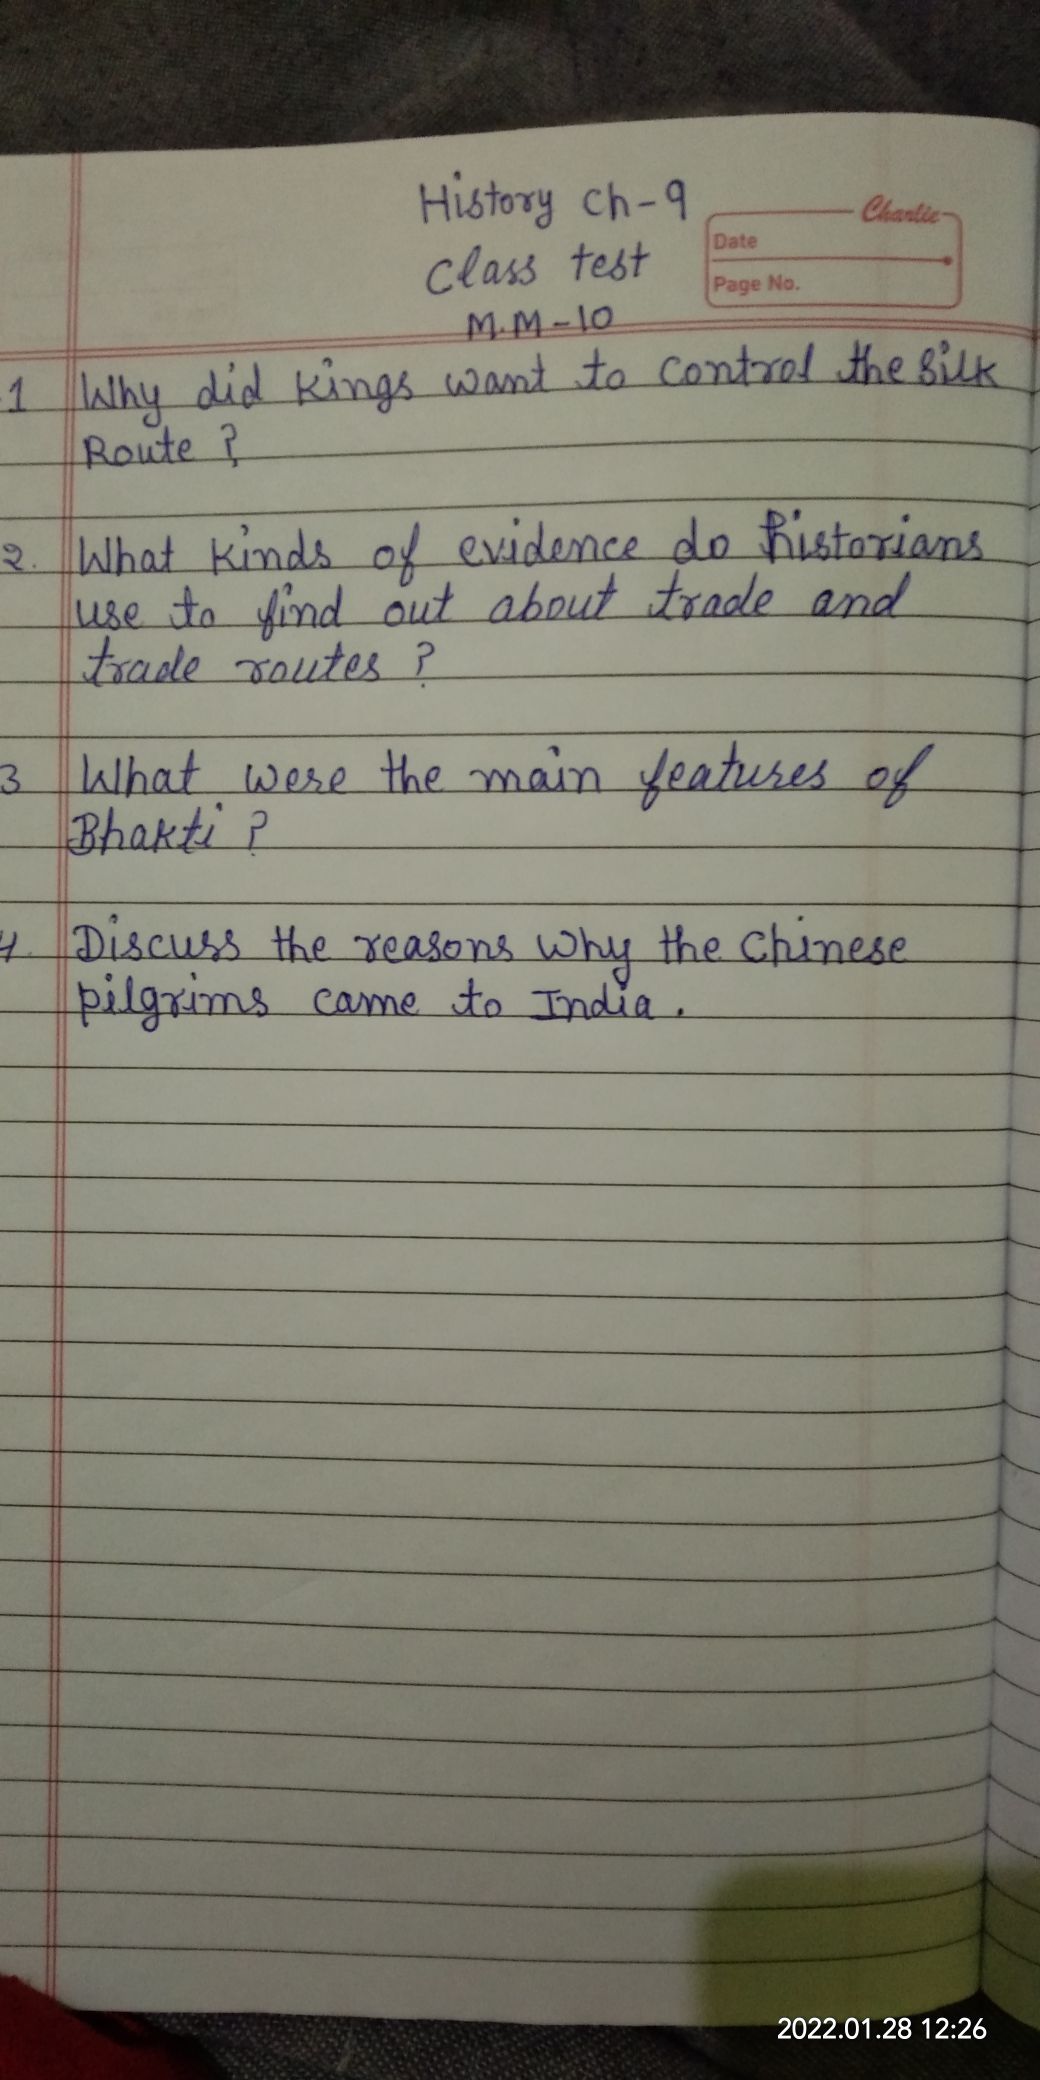 History Ch-9
Charlie
Class test
Date
Page No.
M.M-10
1 Why did kings want to control the Silk
Route ?
2. What kinds of evidence do historians
use to find out about trade and
trade routes ?
3 What were the main features of
Bhakti ?
4. Discuss the reasons why the Chinese
pilgrims came to India .
2022.01.28 12:26